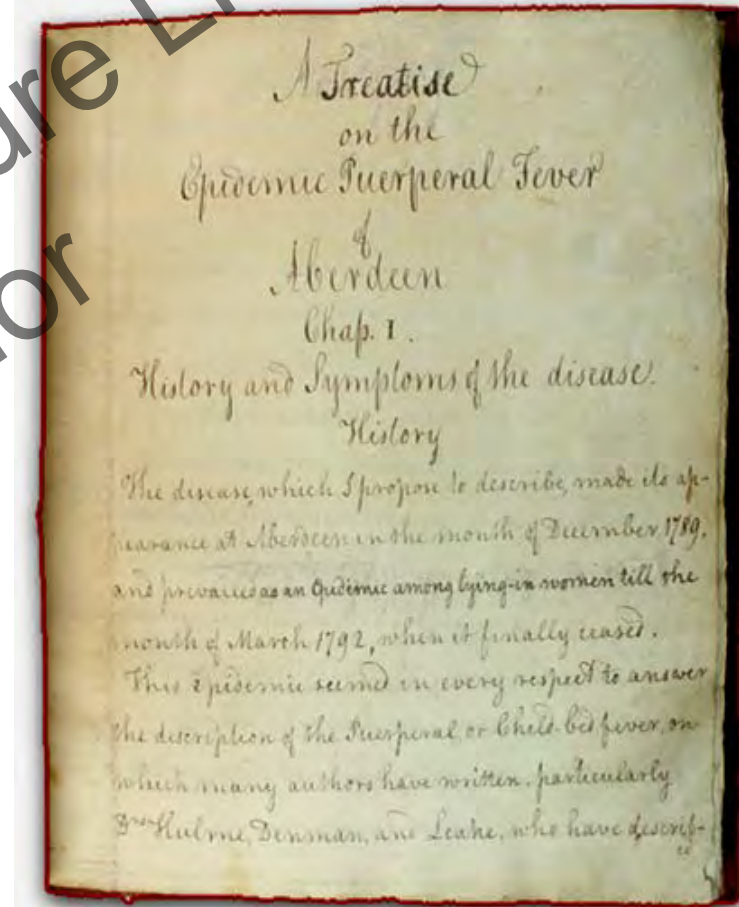 A Treatise
on the
Epidemic Puerperal Fever
of
Aberdeen
Chap. I.
History and Symptoms of the disease.
History
The disease, which I propose to describe, made its ap-
pearance at Aberdeen in the month of December 1789,
and prevailed as an Epidemic among lying-in women till the
month of March 1792, when it finally ceased.
This Epidemic seemed in every respect to answer
the description of the Puerperal or Child-bed fever, on
which many authors have written, particularly
Drs Hulme, Denman, and Leake, who have descrip-
or